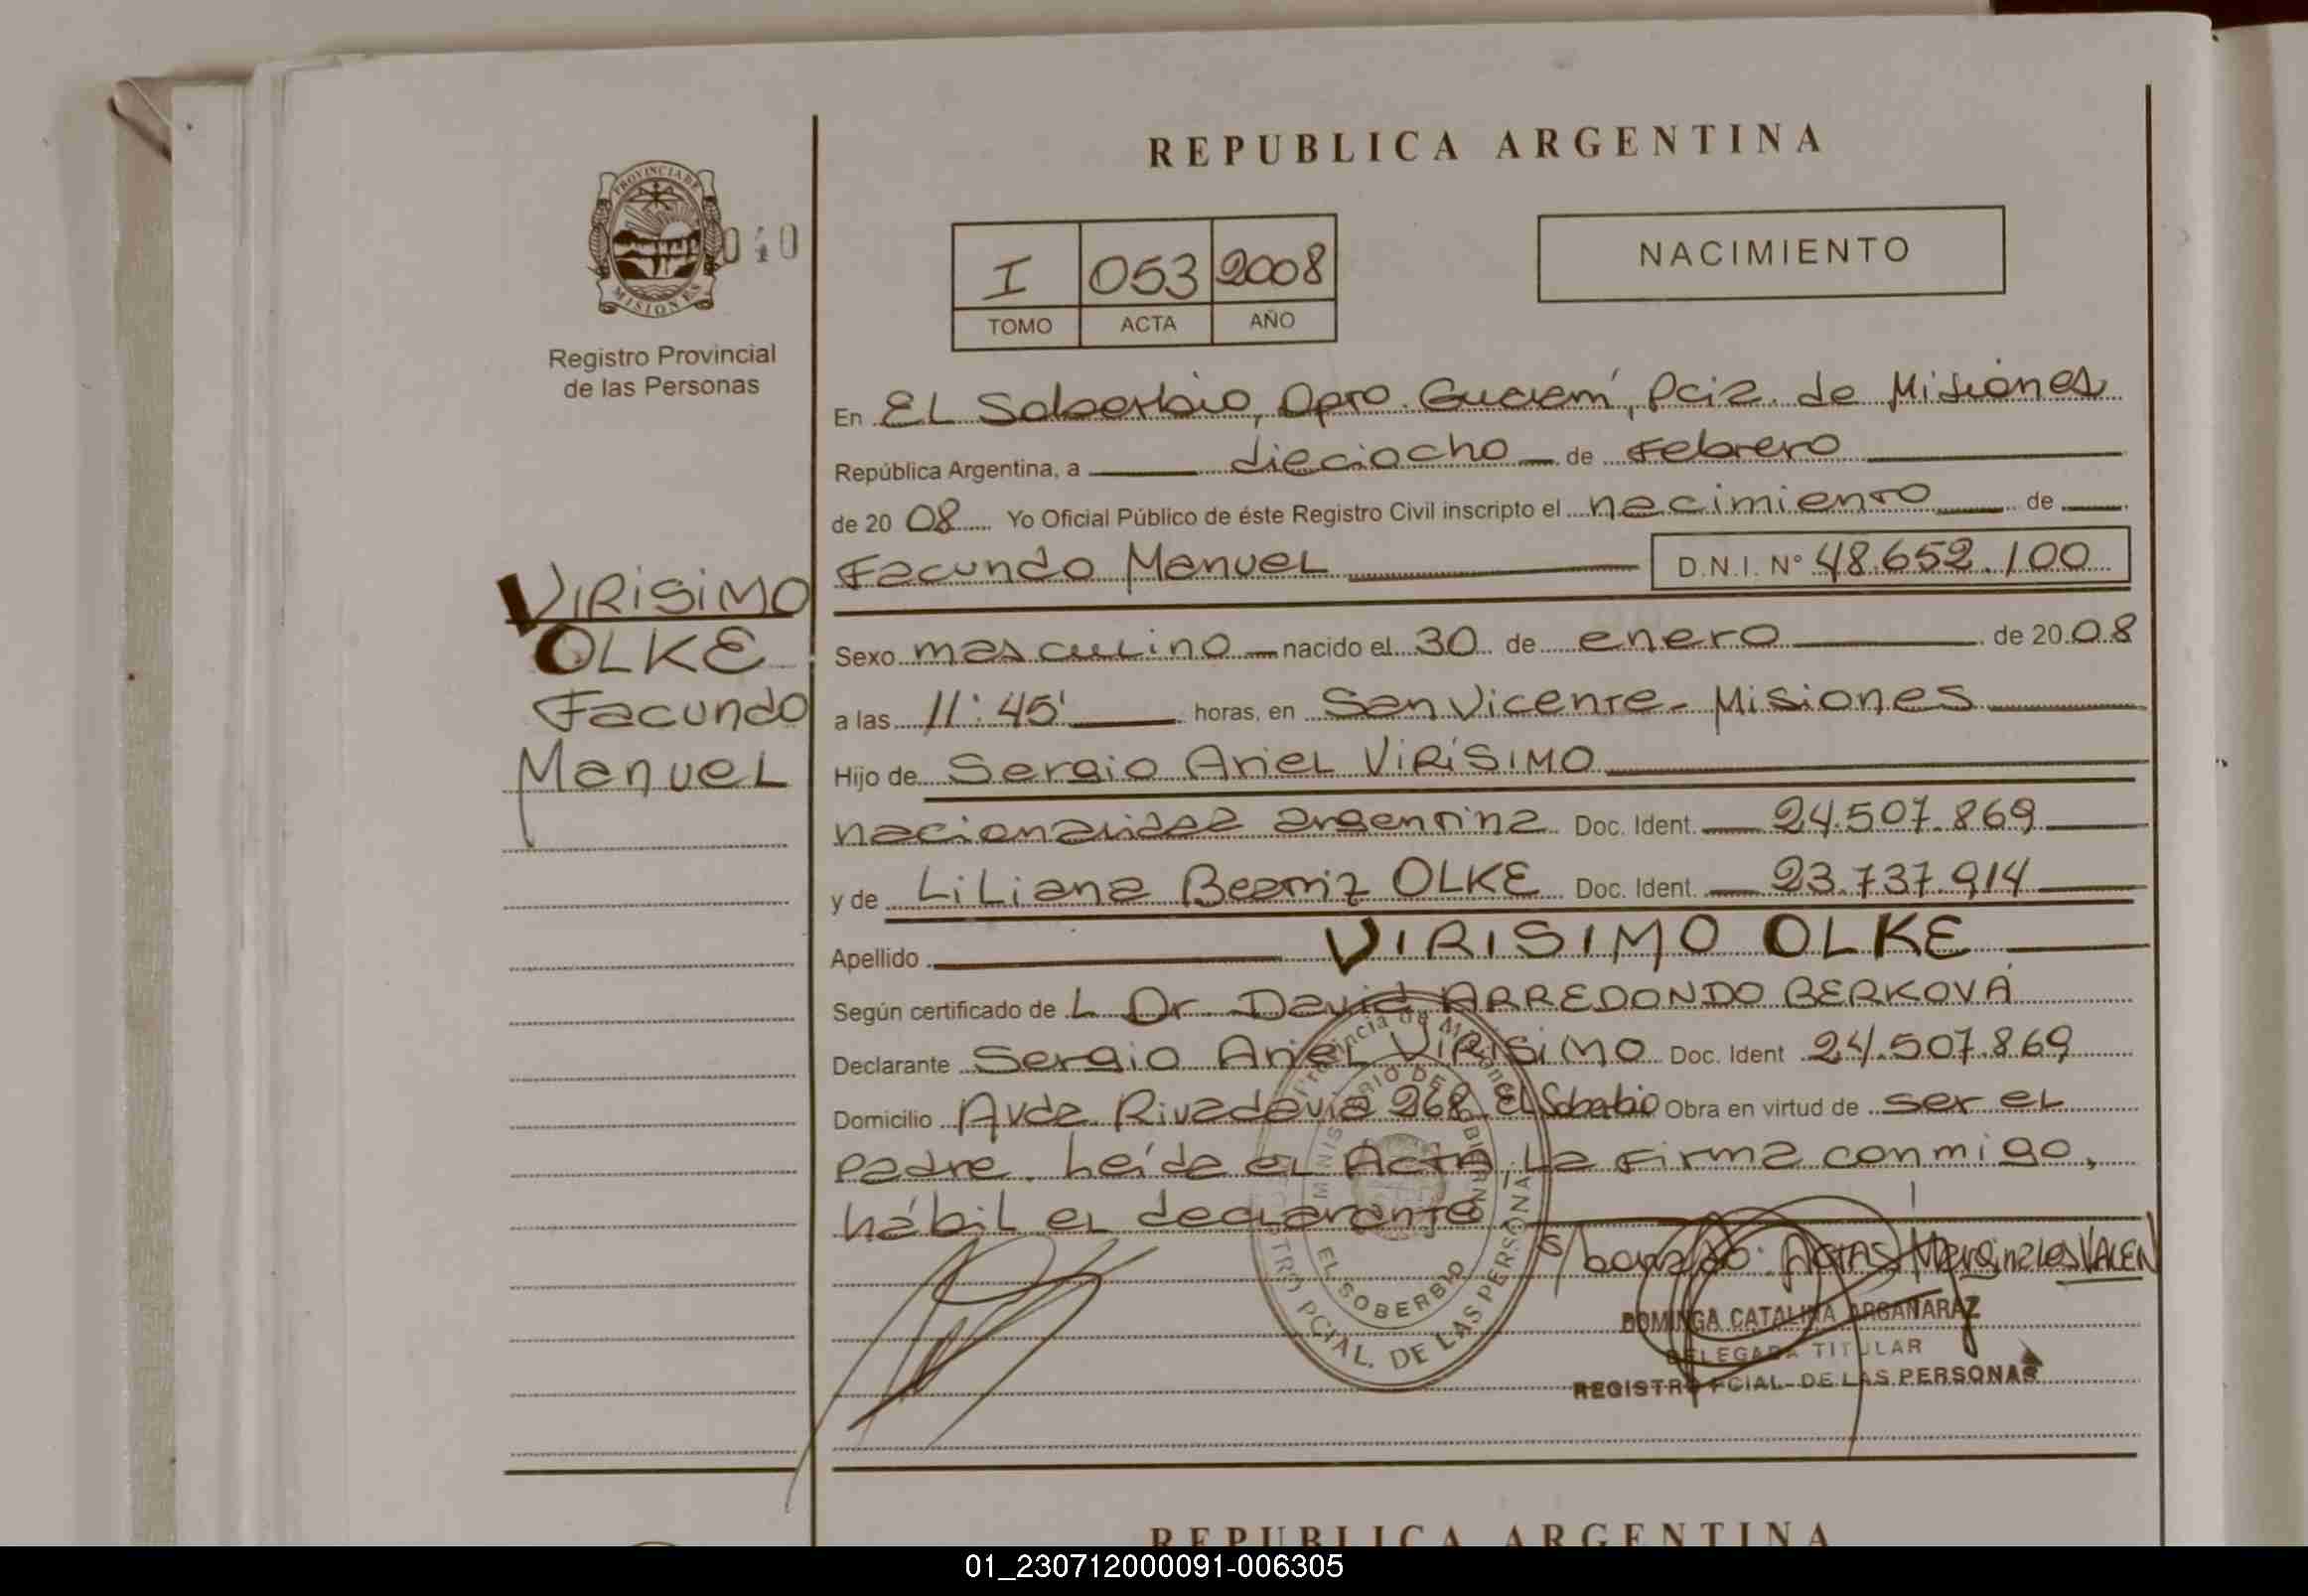 REPUBLICA ARGENTINA
PROVINCIA DE
MISIONES
040
I 053 2008
TOMO ACTA AÑO
NACIMIENTO
Registro Provincial
de las Personas
En EL Soberbio, Dpto. Guaraní, Pcia. de Misiones
República Argentina, a dieciocho de Febrero
de 2008 Yo Oficial Público de éste Registro Civil inscripto el nacimiento de
Facundo Manuel D.N.I. N° 48.652.100
VIRISIMO
OLKE
Facundo
Manuel
Sexo masculino nacido el 30 de enero de 2008
a las 11:45' horas, en San Vicente - Misiones
Hijo de Sergio Ariel VIRISIMO
nacionalidad argentina Doc. Ident. 24.507.869
y de Liliana Beatriz OLKE Doc. Ident. 23.737.914
Apellido VIRISIMO OLKE
Según certificado de L Dr. David ARREDONDO BERKOVA
Declarante Sergio Ariel VIRISIMO Doc. Ident 24.507.869
Domicilio Avda. Rivadavia 268 El Soberbio Obra en virtud de ser el
padre. Leída el Acta, La Firma conmigo,
hábil el declarante
S/ borrado: ACTAS Marginales VALEN
Provincia de Misiones
MINISTERIO DE GOBIERNO
EL SOBERBIO
REGISTRO PCIAL. DE LAS PERSONAS
DOMINGA CATALINA ARGAÑARAZ
DELEGADA TITULAR
REGISTRO PCIAL. DE LAS PERSONAS
REPUBLICA ARGENTINA
01_230712000091-006305